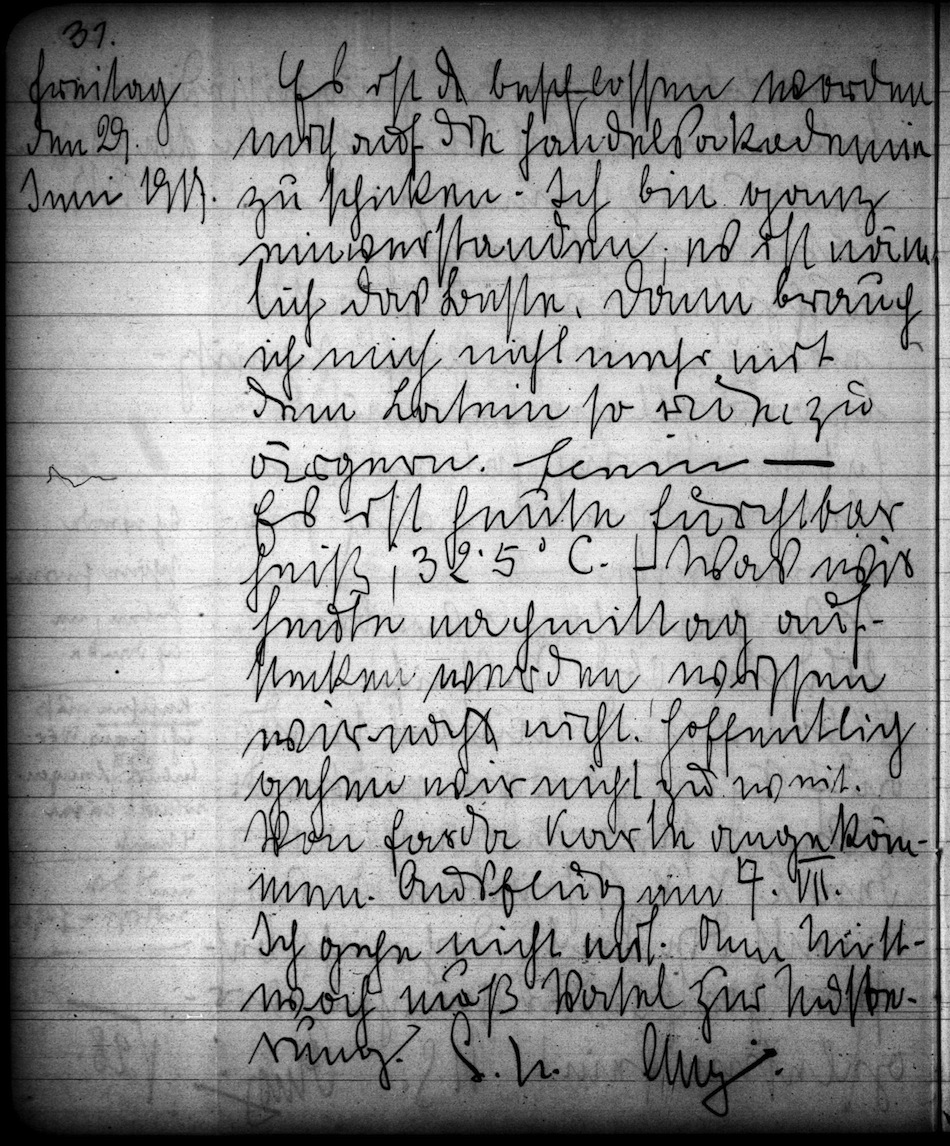 31.
Freitag
den 29.
Juni 1917.
Es ist beschlossen worden
mich auf die Handelsakademie
zu schicken. Ich bin ganz
einverstanden, es ist näm
lich das Beste. Dann brauch
ich mich nicht mehr mit
dem Latein so zu
ärgern.
Es ist heute furchtbar
heiß, 32·5° C. Was wir
heute nachmittag auf-
stecken werden wissen
wir noch nicht. Hoffentlich
gehen wir nicht zu weit.
Von Karte angekom-
men. Ausflug am 7. VII.
Ich gehe nicht mit. Am Mitt-
woch muß Vatel zur Muste-
rung.